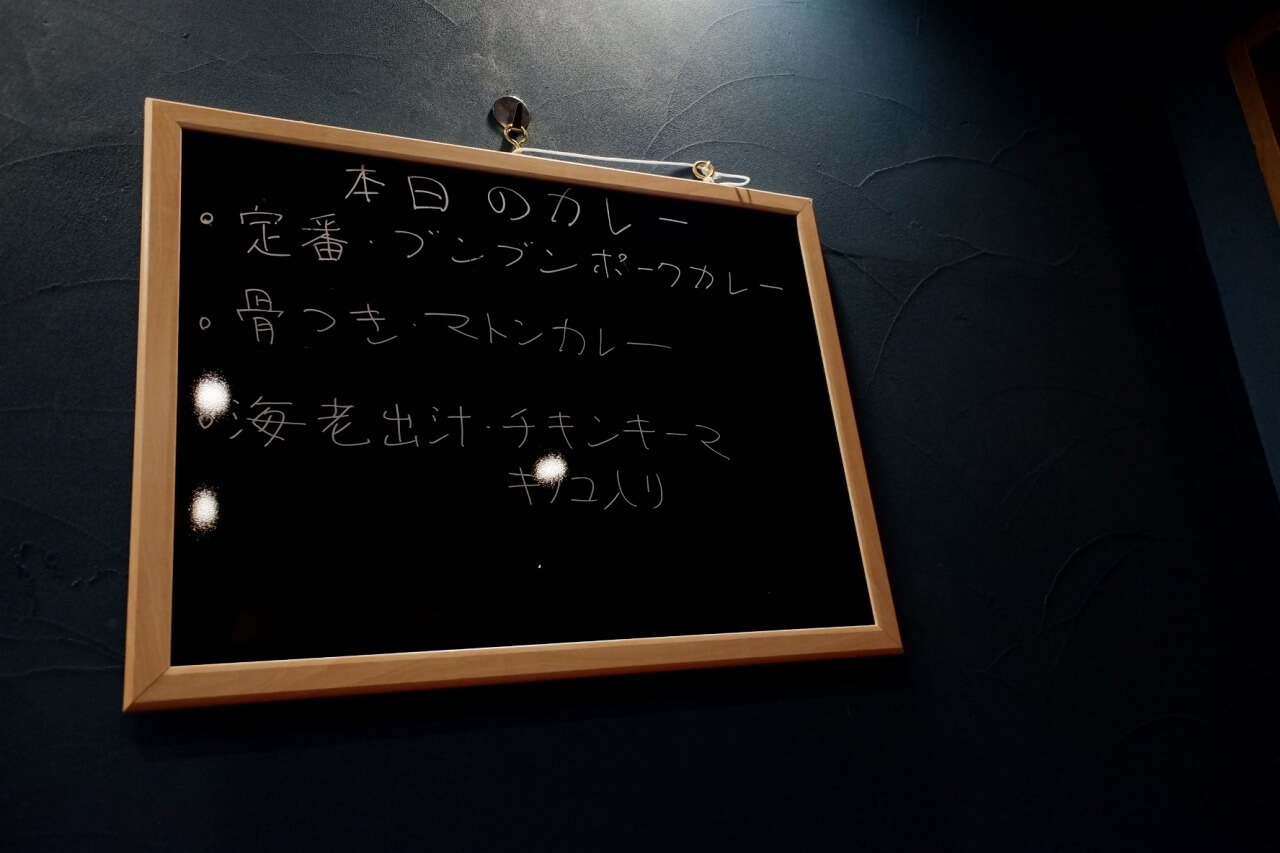 本日のカレー
○ 定番・ブンブンポークカレー
○ 骨つき・マトンカレー
○ 海老出汁・チキンキーマ
キノコ入り